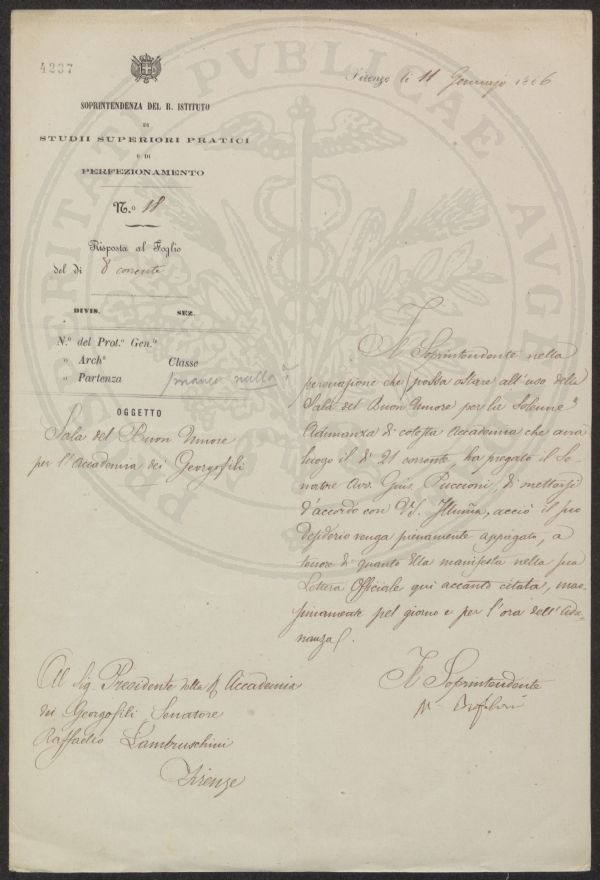 4237
Firenze li 11 Gennajo 1866
SOPRINTENDENZA DEL R. ISTITUTO
DI
STUDII SUPERIORI PRATICI
E DI
PERFEZIONAMENTO
N.º 18
Risposta al Foglio
del dì 8 corrente
DIVIS. SEZ.
N.º del Prot.º Gen.le
" Arch.º Classe
" Partenza
manca nulla?
OGGETTO
Sala del Buon Umore
per l'Accademia dei Georgofili
Il Soprintendente nella
persuasione che possa ostare all'uso della
Sala del Buon Umore per la Solenne
Adunanza di cotesta Accademia che avrà
luogo il dì 21 corrente, ha pregato il Se-
natore Avv. Gius. Puccioni, di mettersi
d'accordo con acciò il suo
desiderio venga pienamente appagato, a
tenore di quanto Ella manifesta nella sua
Lettera Officiale qui accanto citata, mas-
simamente pel giorno e per l'ora dell'Adu-
nanza.
Il Soprintendente
Al Sig. Presidente della R. Accademia
dei Georgofili Senatore
Raffaello Lambruschini
Firenze
PROSPERITATI PVBLICAE AVGE